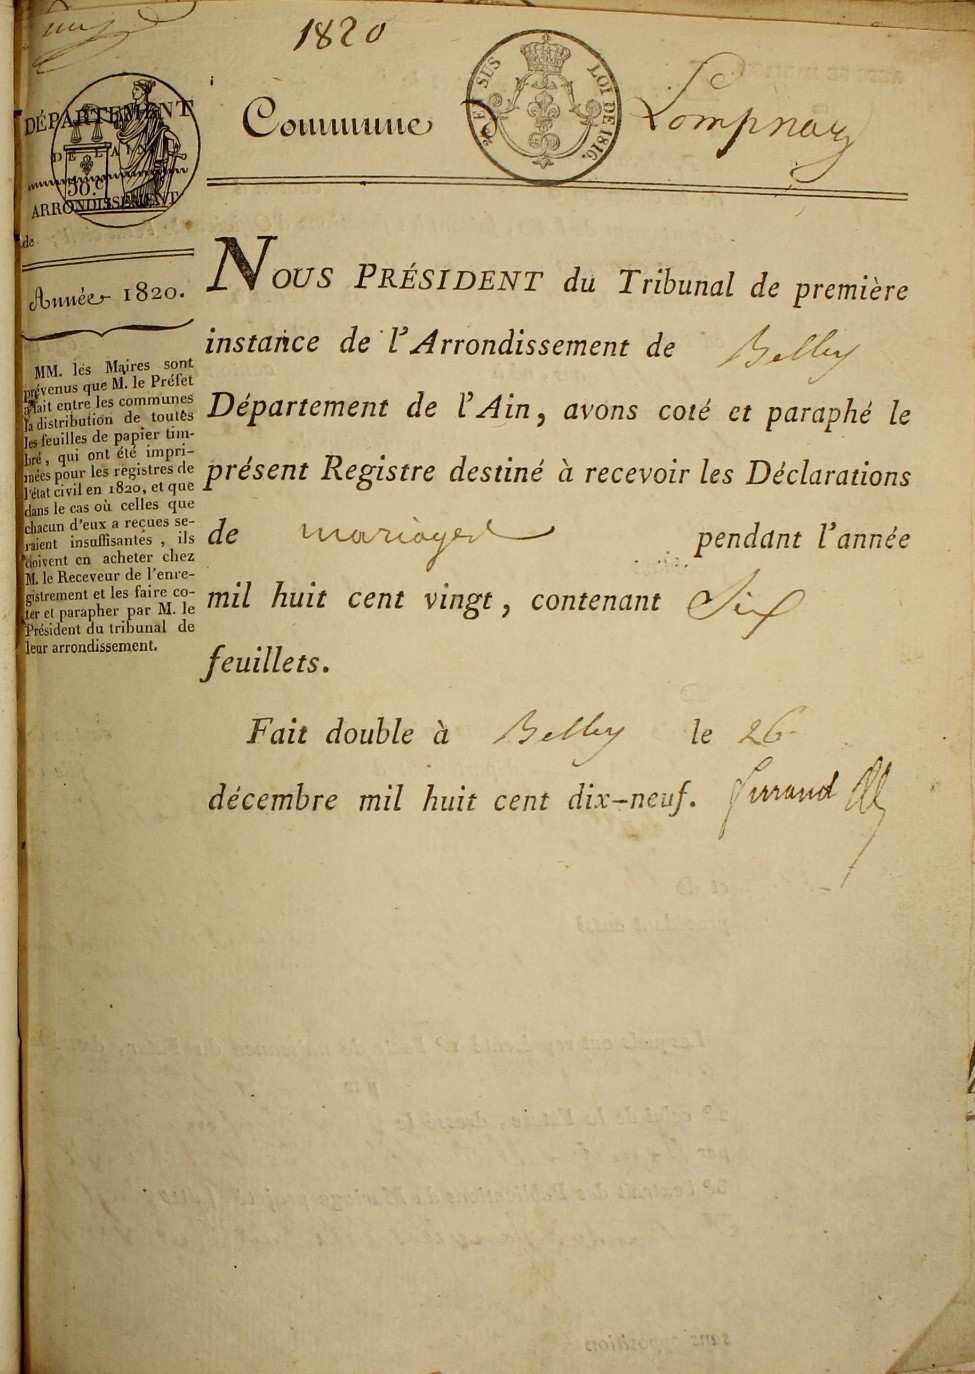 1820
Commune de Lompnaz
ET SUS
LOI DE 1816.
DÉPARTEMENT
DE L'AIN
50 C
ARRONDISSEMENT
de
Année 1820.
MM. les Maires sont
prévenus que M. le Préfet
a fait entre les communes
la distribution de toutes
les feuilles de papier tim-
bré, qui ont été impri-
mées pour les registres de
l'état civil en 1820, et que
dans le cas où celles que
chacun d'eux a reçues se-
raient insuffisantes, ils
doivent en acheter chez
M. le Receveur de l'enre-
gistrement et les faire co-
ter et parapher par M. le
Président du tribunal de
leur arrondissement.
NOUS PRÉSIDENT du Tribunal de première
instance de l'Arrondissement de Belley
Département de l'Ain, avons coté et paraphé le
présent Registre destiné à recevoir les Déclarations
de mariages pendant l'année
mil huit cent vingt, contenant Six
feuillets.
Fait double à Belley le 26
décembre mil huit cent dix-neuf.